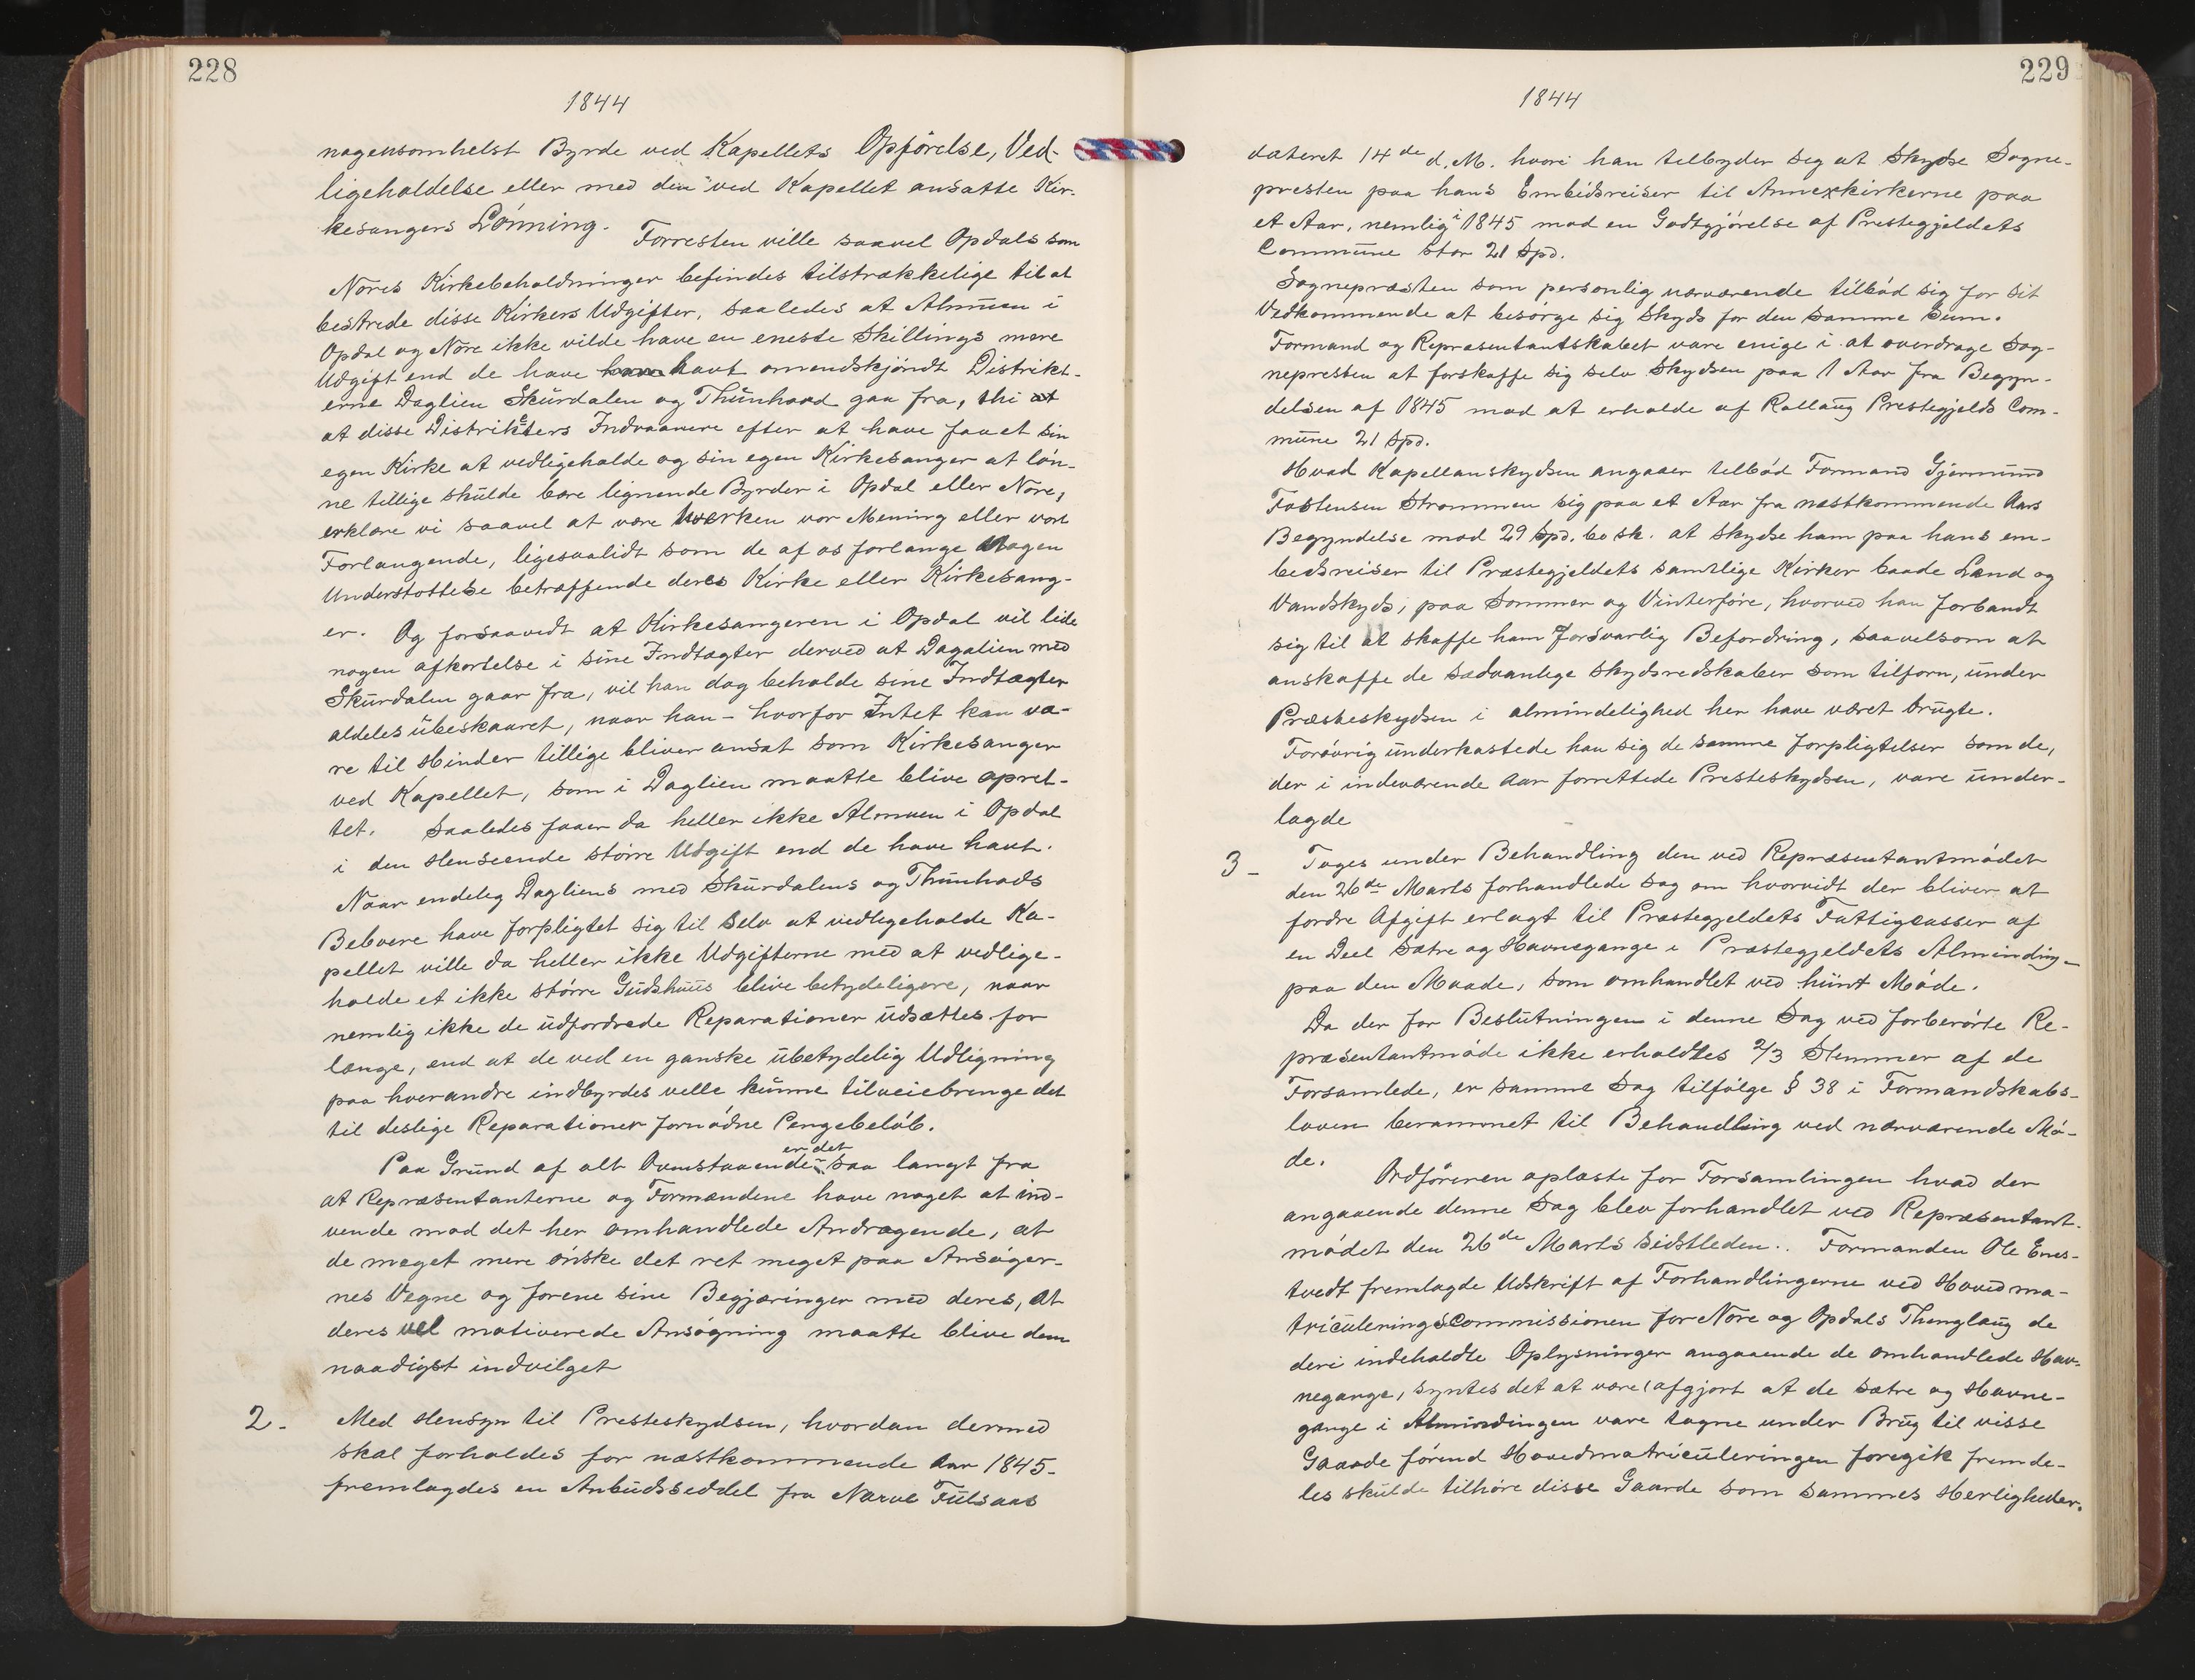 228
1844
nogensomhelst Byrde ved Kapellets Opførelse, Ved-
ligeholdelse eller med den ved Kapellet ansatte Kir-
kesangers Lønning. Forresten ville saavel Opdals som
Nores Kirkebeholdninger befindes tilstrækkelige til at
bestrede disse Kirkers Udgifter, saaledes at Almuen i
Opdal og Nore ikke vilde have en eneste Skillings mere
Udgift end de have havt omendskjøndt Distrikt-
erne Daglien Skurdalen og Thunhovd gaa fra, thi at
at disse Distrikters Indvaanere efter at have faaet sin
egen Kirke at vedligeholde og sin egen Kirkesanger at løn-
ne tillige skulde bære lignende Byrder i Opdal eller Nore,
erklære vi saavel at være hverken vor Mening eller vort
Forlangende, ligesaalidt som de af os forlange Nogen
Understøttelse betræffende deres Kirke eller Kirkesang-
er. Og forsaavidt at Kirkesangeren i Opdal vil lide
nogen afkortelse i sine Indtægter derved at Dagalien med
Skurdalen gaar fra, vil han dog beholde sine Indtægter
aldeles ubeskaaret, naar han - hvorfor Intet kan væ-
re til Hinder tillige bliver ansat som Kirkesanger
ved Kapellet, som i Daglien maatte blive opret-
tet. Saaledes faaer da heller ikke Almuen i Opdal
i den Henseende større Udgift end de have havt.
Naar endelig Dagliens med Skurdalens og Thunhovds
Beboere have forpligtet sig til selv at vedligeholde Ka-
pellet ville da heller ikke Udgifterne med at vedlige-
holde et ikke større Gudshuus blive betydeligere, naar
nemlig ikke de udfordrede Reparationer udsættes for
længe, end at de ved en ganske ubetydelig Udligning
paa hverandre indbyrdes velle kunne tilveiebringe det
til deslige Reparationer fornødne Pengebeløb.
er det
Paa Grund af alt Ovenstaaende saa langt fra
at Repræsentanterne og Formændene have noget at ind-
vende mod det her omhandlede Andragende, at
de meget mere ønske det ret meget paa Ansøger-
nes Vegne og forene sine Begjæringer med deres, at
deres vel motiverede Ansøgning maatte blive dem
naadigst indvilget
2. Med Hensyn til Presteskydsen, hvordan dermed
skal forholdes for næstkommende Aar 1845.
fremlagdes en Anbudsseddel fra Narve Fulsaas
229
1844
dateret 14de d. M. hvori han tilbyder sig at Skydse Sogne-
presten paa hans Embedsreiser til Annexkirkerne paa
et Aar, nemlig i 1845 mod en Godtgjørelse af Prestegjeldets
Commune stor 21 Spd.
Sognepræsten som personlig nærværende tilbød sig for sit
Vedkommende at besørge sig Skyds for den samme Sum.
Formand og Repræsentantskabet vare enige i at overdrage Sog-
nepresten at forskaffe sig selv Skydsen paa 1 Aar fra Begyn-
delsen af 1845 mod at erholde af Rollaug Prestegjelds Com-
mune 21 Spd.
Hvad Kapellanskydsen angaaer tilbød Formand Gjermund
Fostensen Strømmen sig paa et Aar fra næstkommende Aars
Begyndelse mod 29 Spd. 60 sk. at skydse ham paa hans em-
bedsreiser til Præstegjeldets samtlige Kirker baade Land og
Vandskyds, paa Sommer og Vinterføre, hvorved han forbandt
sig til at skaffe ham forsvarlig Befordring, saavelsom at
anskaffe de sædvanlige skydsredskaber som tilforn, under
Præsteskydsen i almindelighed her have været brugte.
Forøvrig underkastede han sig de samme forpligtelser som de,
der i indeværende Aar forrettede Presteskydsen, vare under-
lagde
3 - Toges under Behandling den ved Repræsentantmødet
den 26de Marts forhandlede Sag om hvorvidt der bliver at
fordre Afgift erlagt til Præstegjeldets Fattigcasser af
en Deel Sætre og Havnegange i Præstegjeldets Alminding
paa den Maade, som omhandlet ved hiint Møde.
Da der for Beslutningen i denne Sag ved forberørte Re-
præsentantmøde ikke erholdtes 2/3 Stemmer af de
Forsamlede, er samme Sag tilfølge § 38 i Formandskabs-
loven berammet til Behandling ved nærværende Mø-
de. Ordføreren oplæste for Forsamlingen hvad der
angaaende denne Sag blev forhandlet ved Repræsentant-
mødet den 26de Marts sidstleden. Formanden Ole Enes-
tvedt fremlagde Udskrift af Forhandlingerne ved Hovedma-
triculeringsCommissionen for Nore og Opdals Thinglaug de
deri indeholdte Oplysninger angaaende de omhandlede Hav-
negange, syntes det at være afgjort at de sætre og Havne-
gange i Almindingen vare tagne under Brug til visse
Gaarde førend Hovedmatriculeringen foregik fremde-
les skulde tilhøre disse Gaarde som sammes Herligheder.